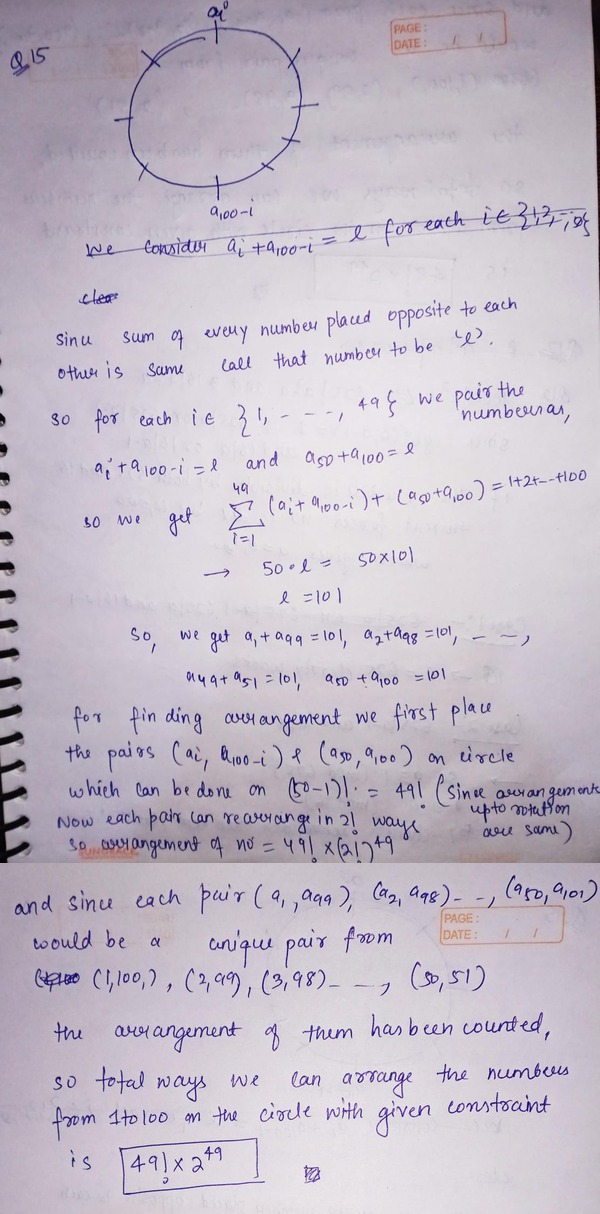 Q.15
ai
PAGE :
DATE : / /
a100-i
we consider ai + a100-i = l for each i ∈ {1,2, -, 50}
clear
Since sum of every number placed opposite to each
other is same call that number to be 'l'.
so for each i ∈ {1, - - - -, 49} we pair the
numbers as,
ai + a100-i = l and a50 + a100 = l
so we get 49 Σ i=1 (ai + a100-i) + (a50 + a100) = 1+2+--+100
→ 50·l = 50×101
l = 101
So, we get a1 + a99 = 101, a2 + a98 = 101, - - -,
a49 + a51 = 101, a50 + a100 = 101
for finding arrangement we first place
the pairs (ai, a100-i) & (a50, a100) on circle
which can be done on (50-1)! = 49! (since arrangements
upto rotation
are same)
Now each pair can rearrange in 2! ways
so arrangement of no = 49! × (2!)^49
SUNDARAM
and since each pair (a1, a99), (a2, a98) - - -, (a50, a101)
PAGE :
DATE : / /
would be a unique pair from
(1,100,), (2,99), (3,98) - - -, (50,51)
the arrangement of them has been counted,
so total ways we can arrange the numbers
from 1 to 100 on the circle with given constraint
is 49! × 2^49